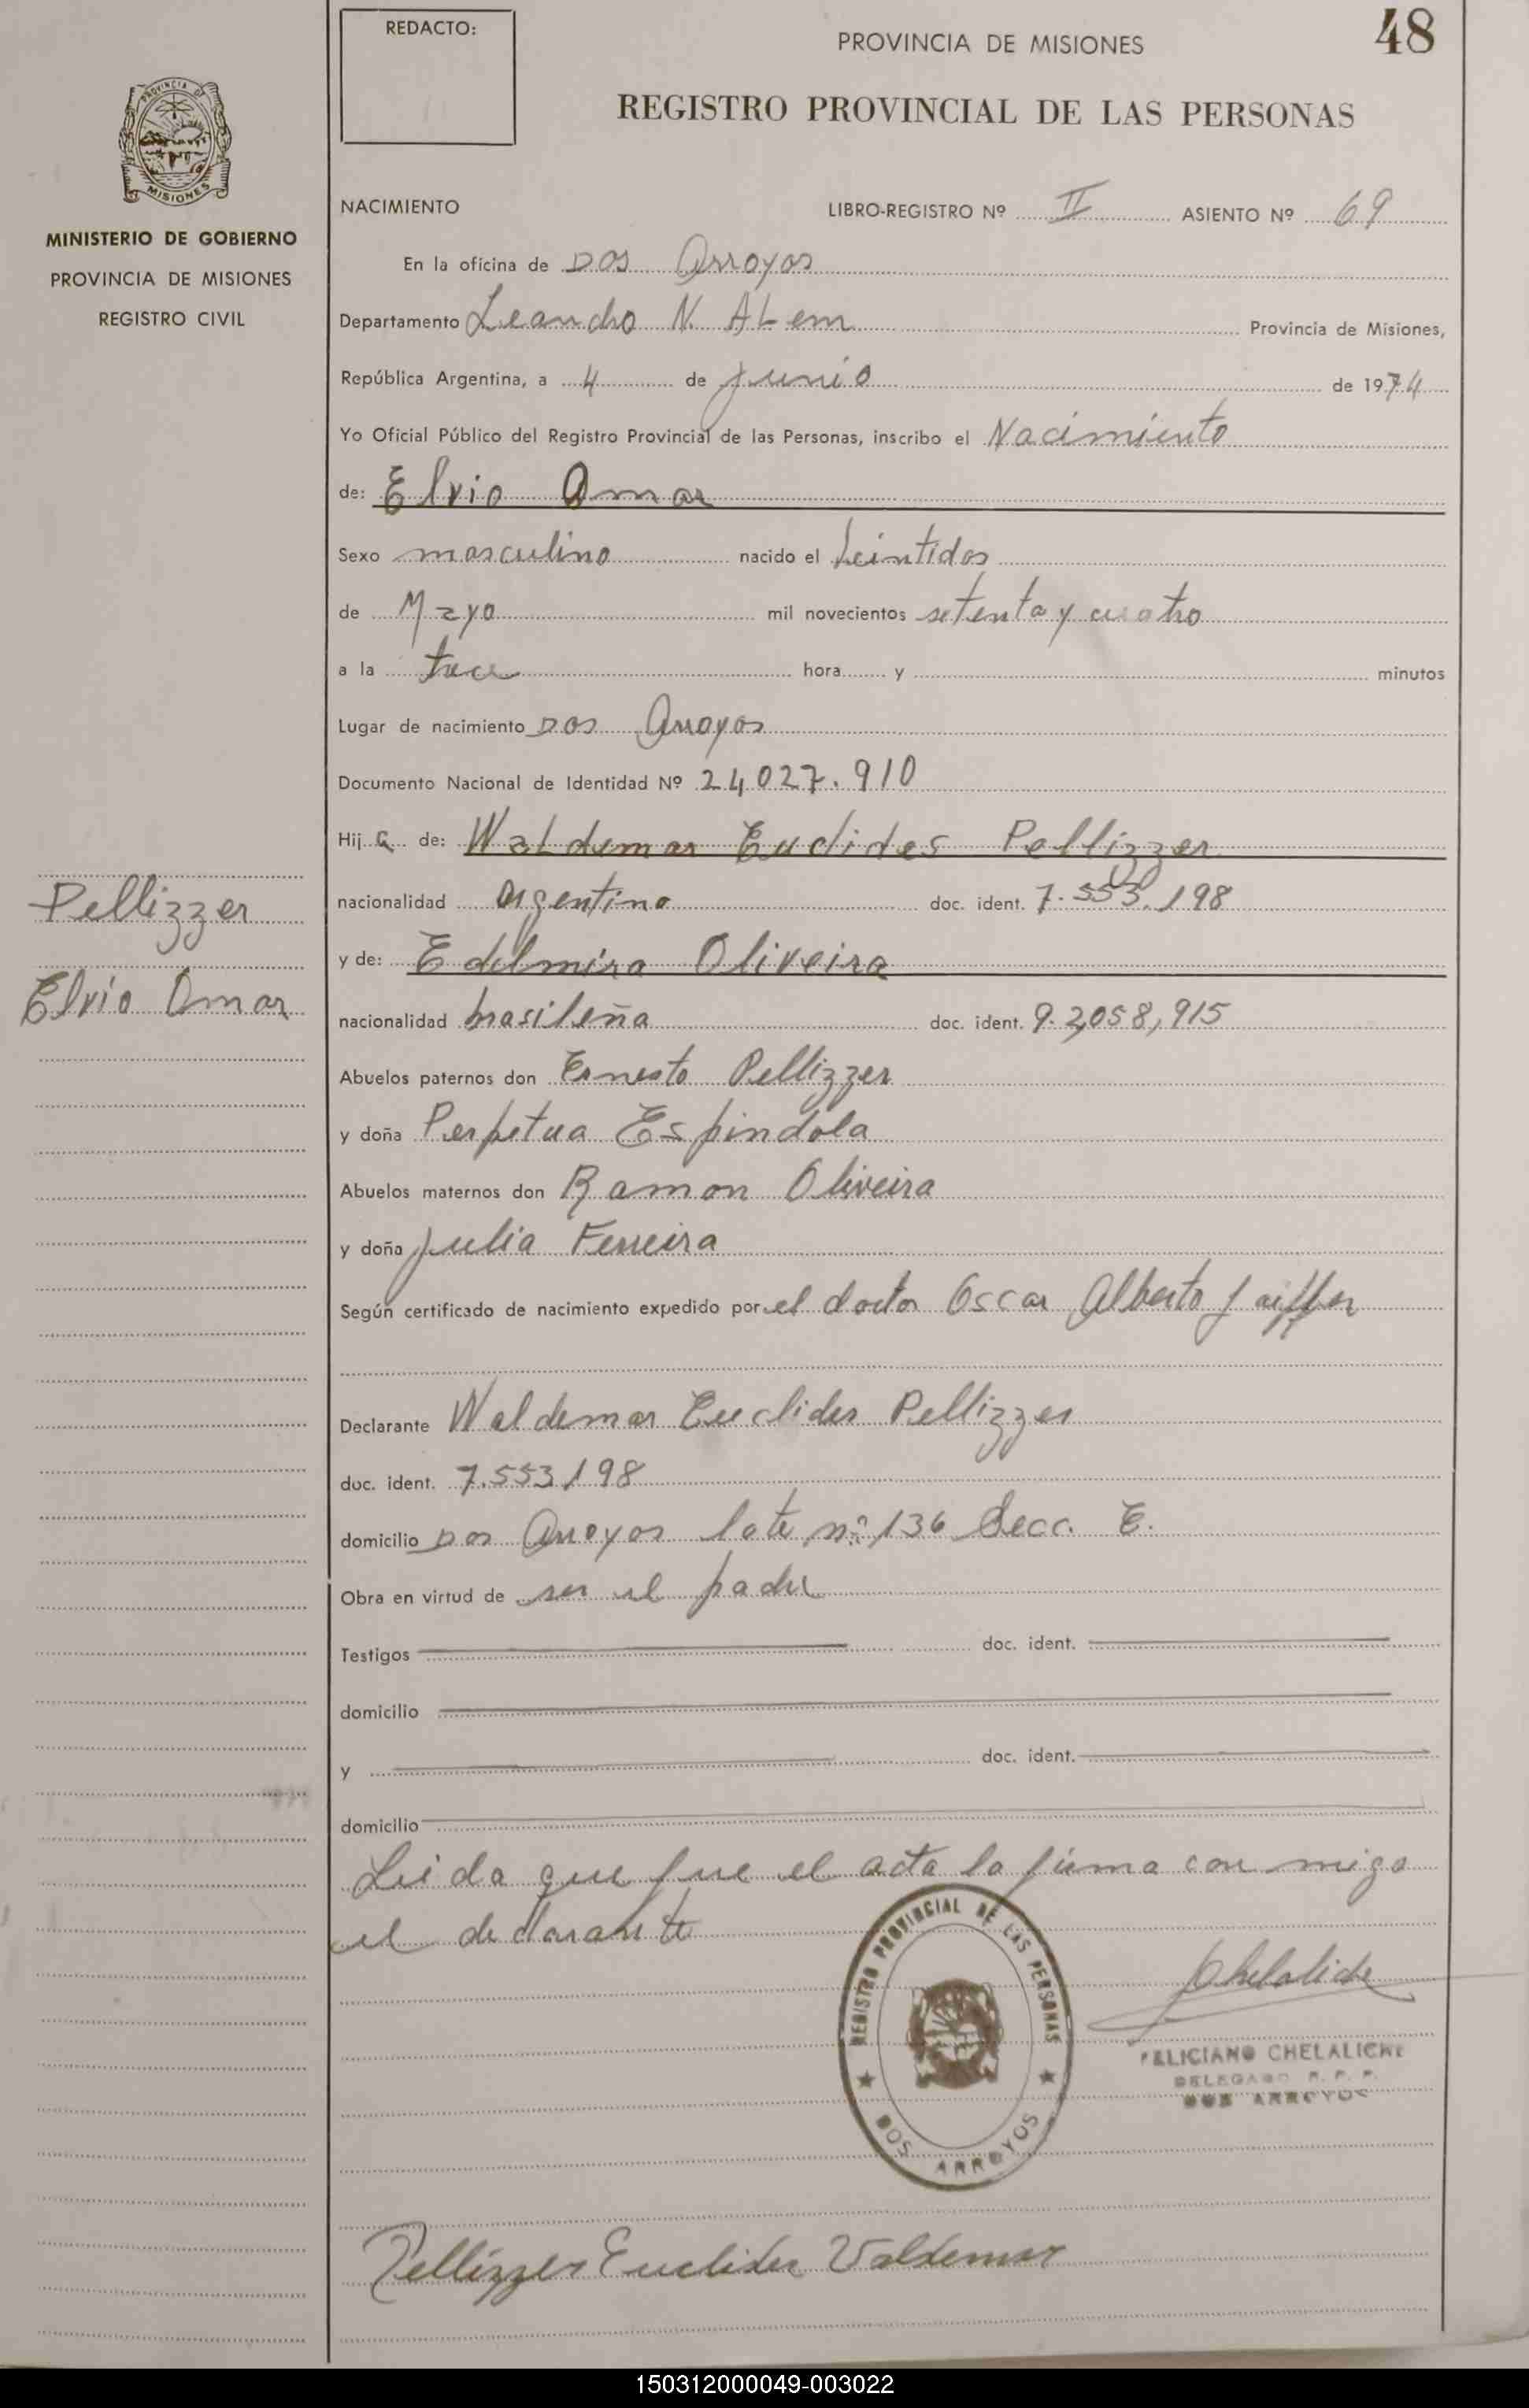 REDACTO:
PROVINCIA DE MISIONES
48
REGISTRO PROVINCIAL DE LAS PERSONAS
PROVINCIA DE
MISIONES
MINISTERIO DE GOBIERNO
PROVINCIA DE MISIONES
REGISTRO CIVIL
NACIMIENTO
LIBRO-REGISTRO Nº II ASIENTO Nº 69
En la oficina de Dos Arroyos
Departamento Leandro N. ALem Provincia de Misiones,
República Argentina, a 4 de junio de 1974
Yo Oficial Público del Registro Provincial de las Personas, inscribo el Nacimiento
de: Elvio Omar
Sexo masculino nacido el Veintidos
de Mayo mil novecientos setenta y cuatro
a la trece hora y minutos
Lugar de nacimiento Dos Arroyos
Documento Nacional de Identidad Nº 24027.910
Hij o de: Waldemar Euclides Pellizzer
nacionalidad argentino doc. ident. 7.553.198
y de: Edelmira Oliveira
nacionalidad brasileña doc. ident. 9.2,058,915
Abuelos paternos don Ernesto Pellizzer
y doña Perpetua Espindola
Abuelos maternos don Ramon Oliveira
y doña Julia Ferreira
Según certificado de nacimiento expedido por el doctor Oscar Alberto
Declarante Waldemar Euclides Pellizzer
doc. ident. 7.553198
domicilio Dos Arroyos lote nº 136 Secc. E.
Obra en virtud de ser el padre
Testigos doc. ident.
domicilio
y doc. ident.
domicilio
Leida que fue el acta la firma con migo
el declarante
Pellizzer
Elvio Omar
REGISTRO PROVINCIAL DE LAS PERSONAS
DOS ARROYOS
Chelaliche
FELICIANO CHELALICHE
DELEGADO R. P. P.
DOS ARROYOS
Pellizzer Euclides Valdemar
150312000049-003022